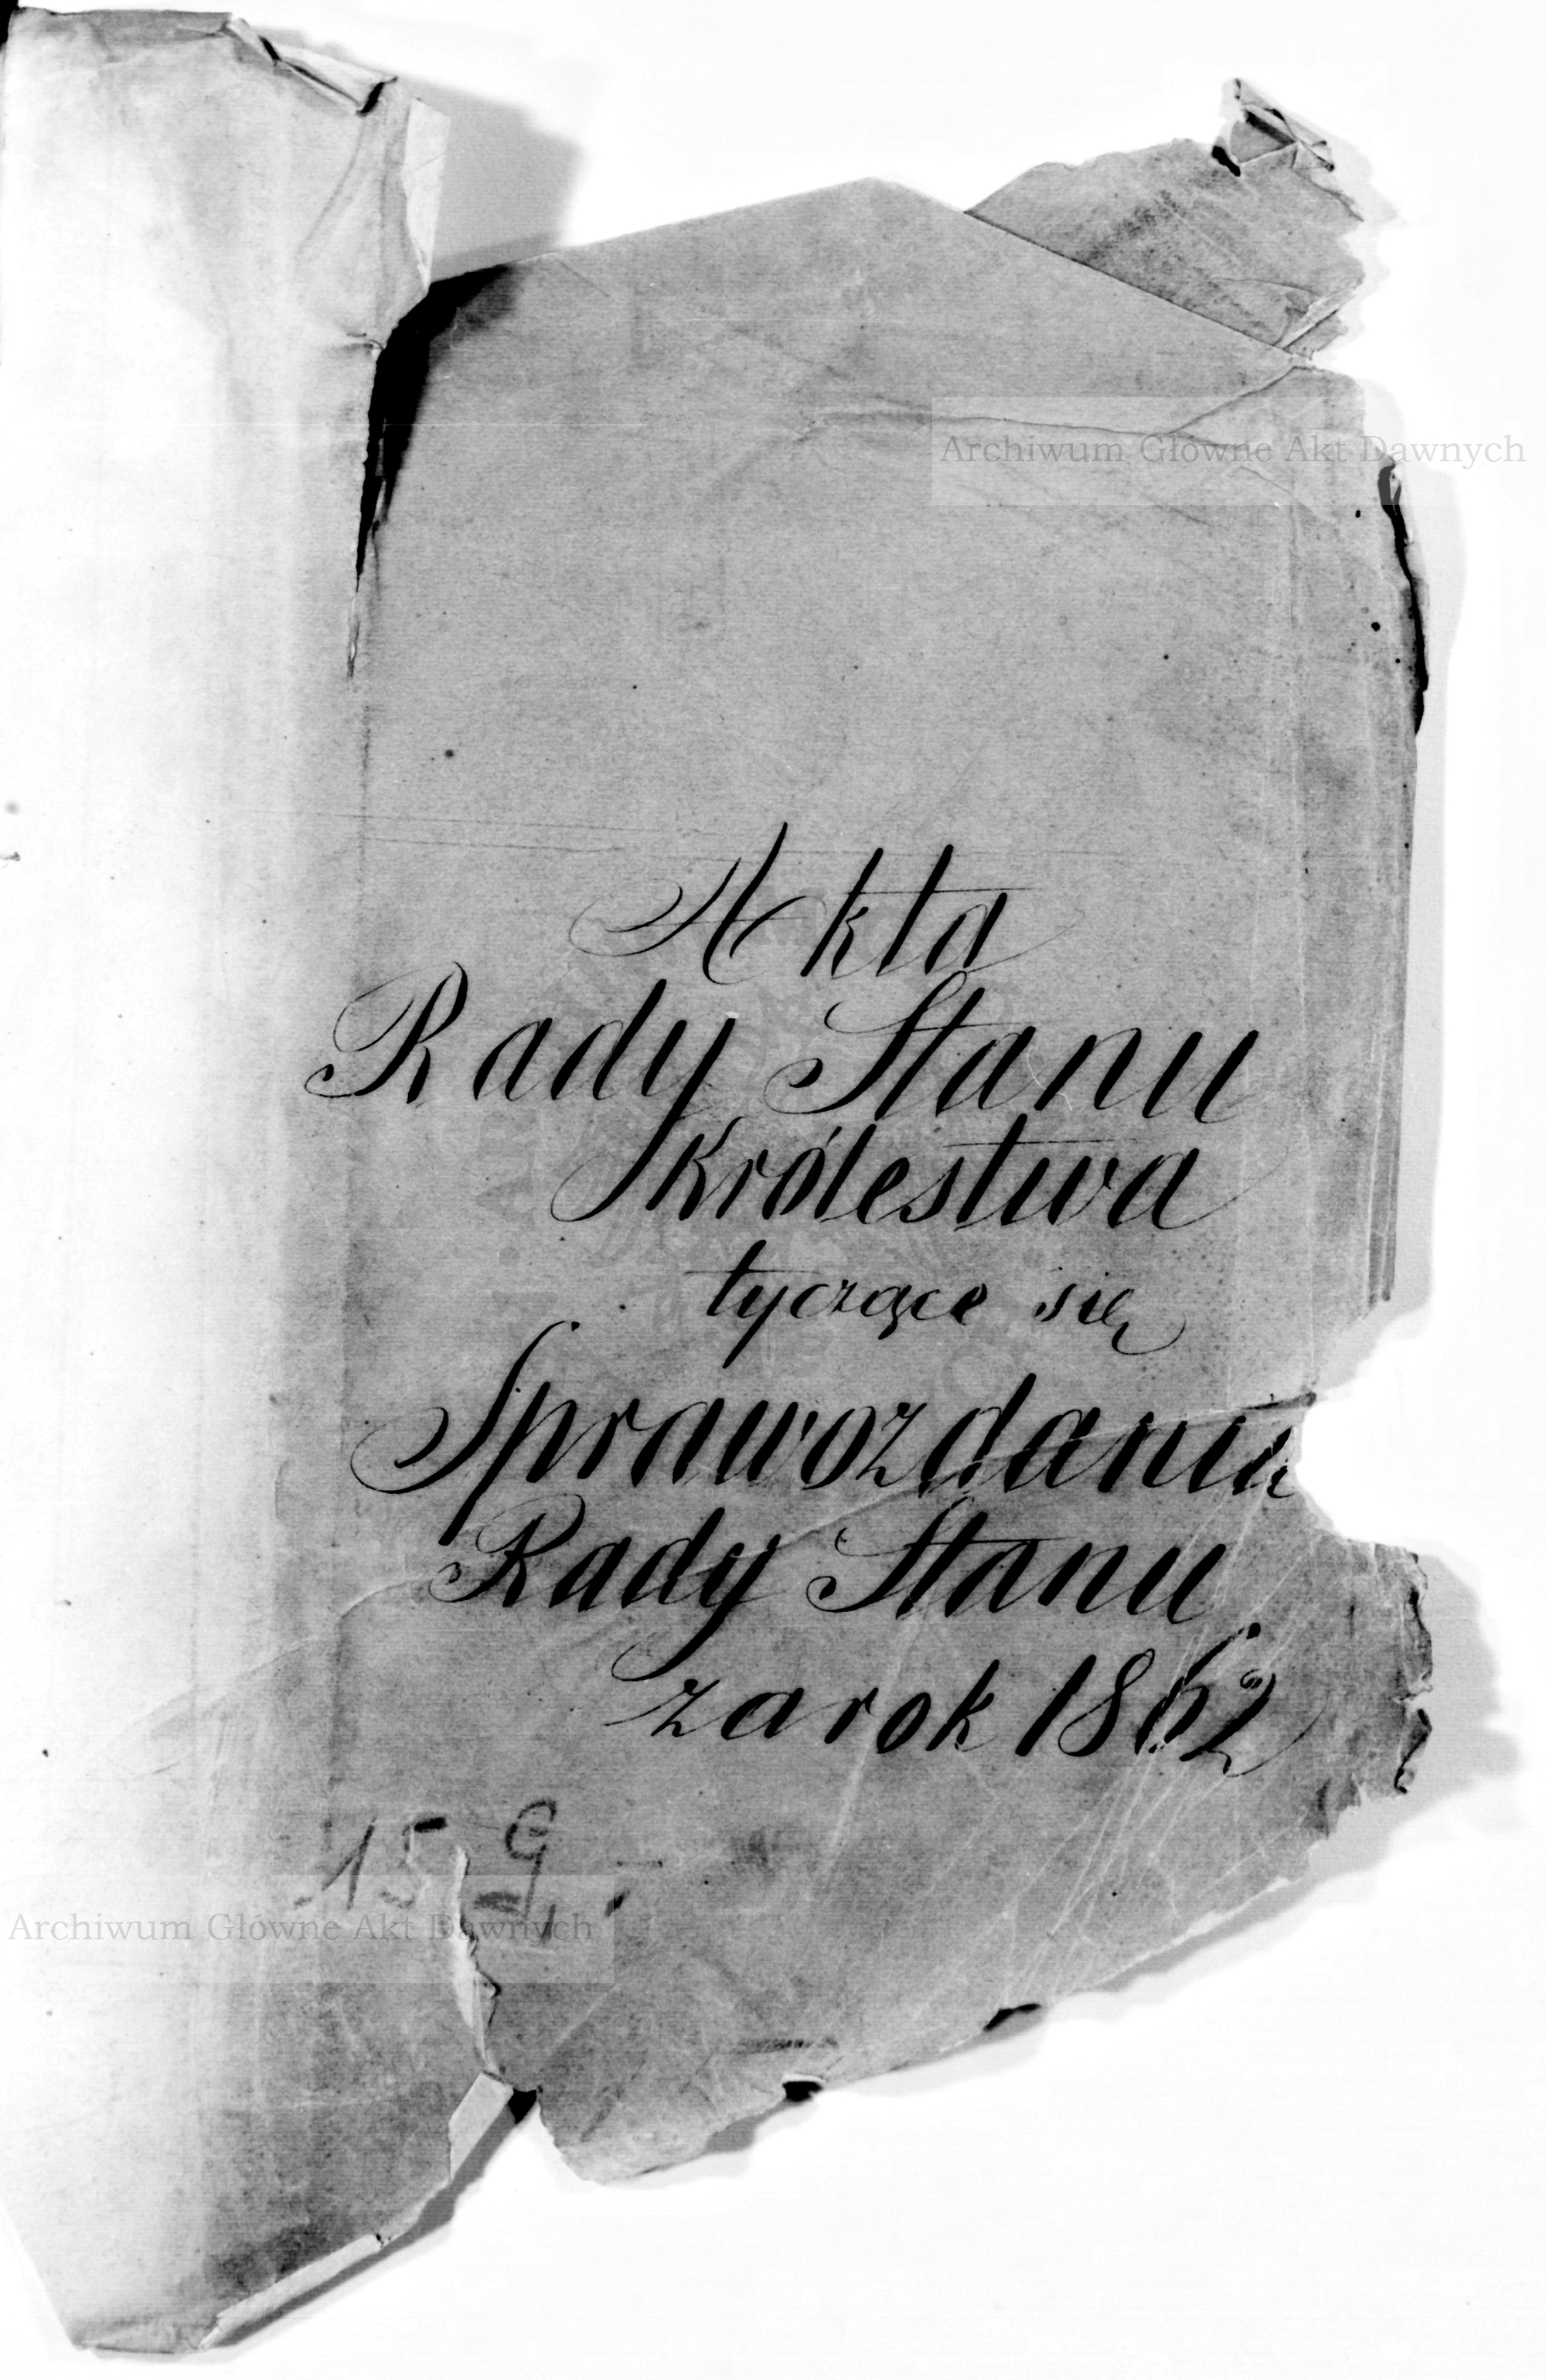 Archiwum Główne Akt Dawnych
Akta
Rady Stanu
Królestwa
tyczące się
Sprawozdania
Rady Stanu
za rok 1862
159.
Archiwum Główne Akt Dawnych